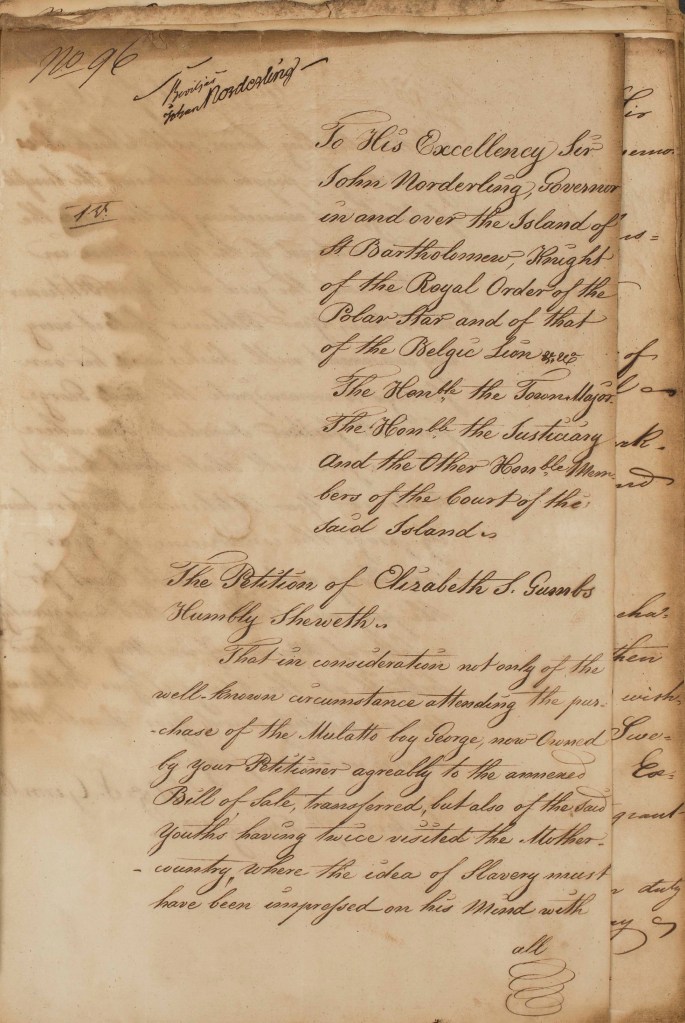 No 96
Beviljas
Johan Norderling
1st
To His Excellency Sir
John Norderling, Governor
in and over the Island of
St Bartholomew, Knight
of the Royal Order of the
Polar Star and of that
of the Belgic Lion &c &c
The Honble the Town Major
The Honble the Justiciary
and the Other Honble Mem-
bers of the Court of the
said Island.
The Petition of Elizabeth S. Gumbs
Humbly Sheweth.
That in consideration not only of the
well-known circumstance attending the pur-
-chase of the Mulatto boy George, now Owned
by your Petitioner agreably to the annexed
Bill of Sale, transferred, but also of the said
Youths having twice visited the Mother-
-country, where the idea of Slavery must
have been impressed on his Mind with
all
of
then
wish
Swe=
Ex=
grant
duty